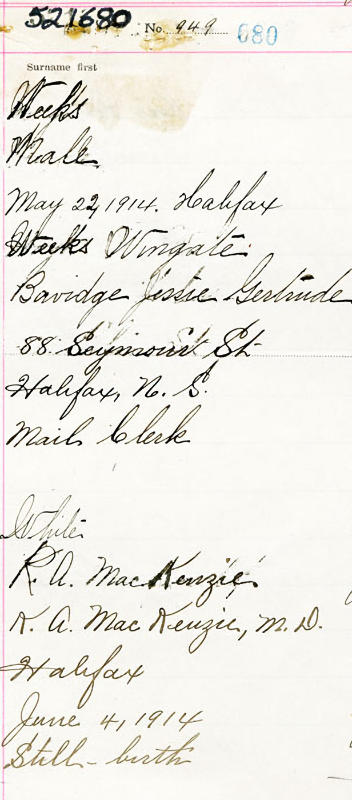 521680
No. 949 680
Surname first
Weeks
Male
May 22, 1914. Halifax
Weeks Wingate
Bavidge Jessie Gertrude
88 Seymour St.
Halifax, N. S.
Mail Clerk
White
K. A. MacKenzie
K. A. MacKenzie, M. D.
Halifax
June 4, 1914
Still-birth